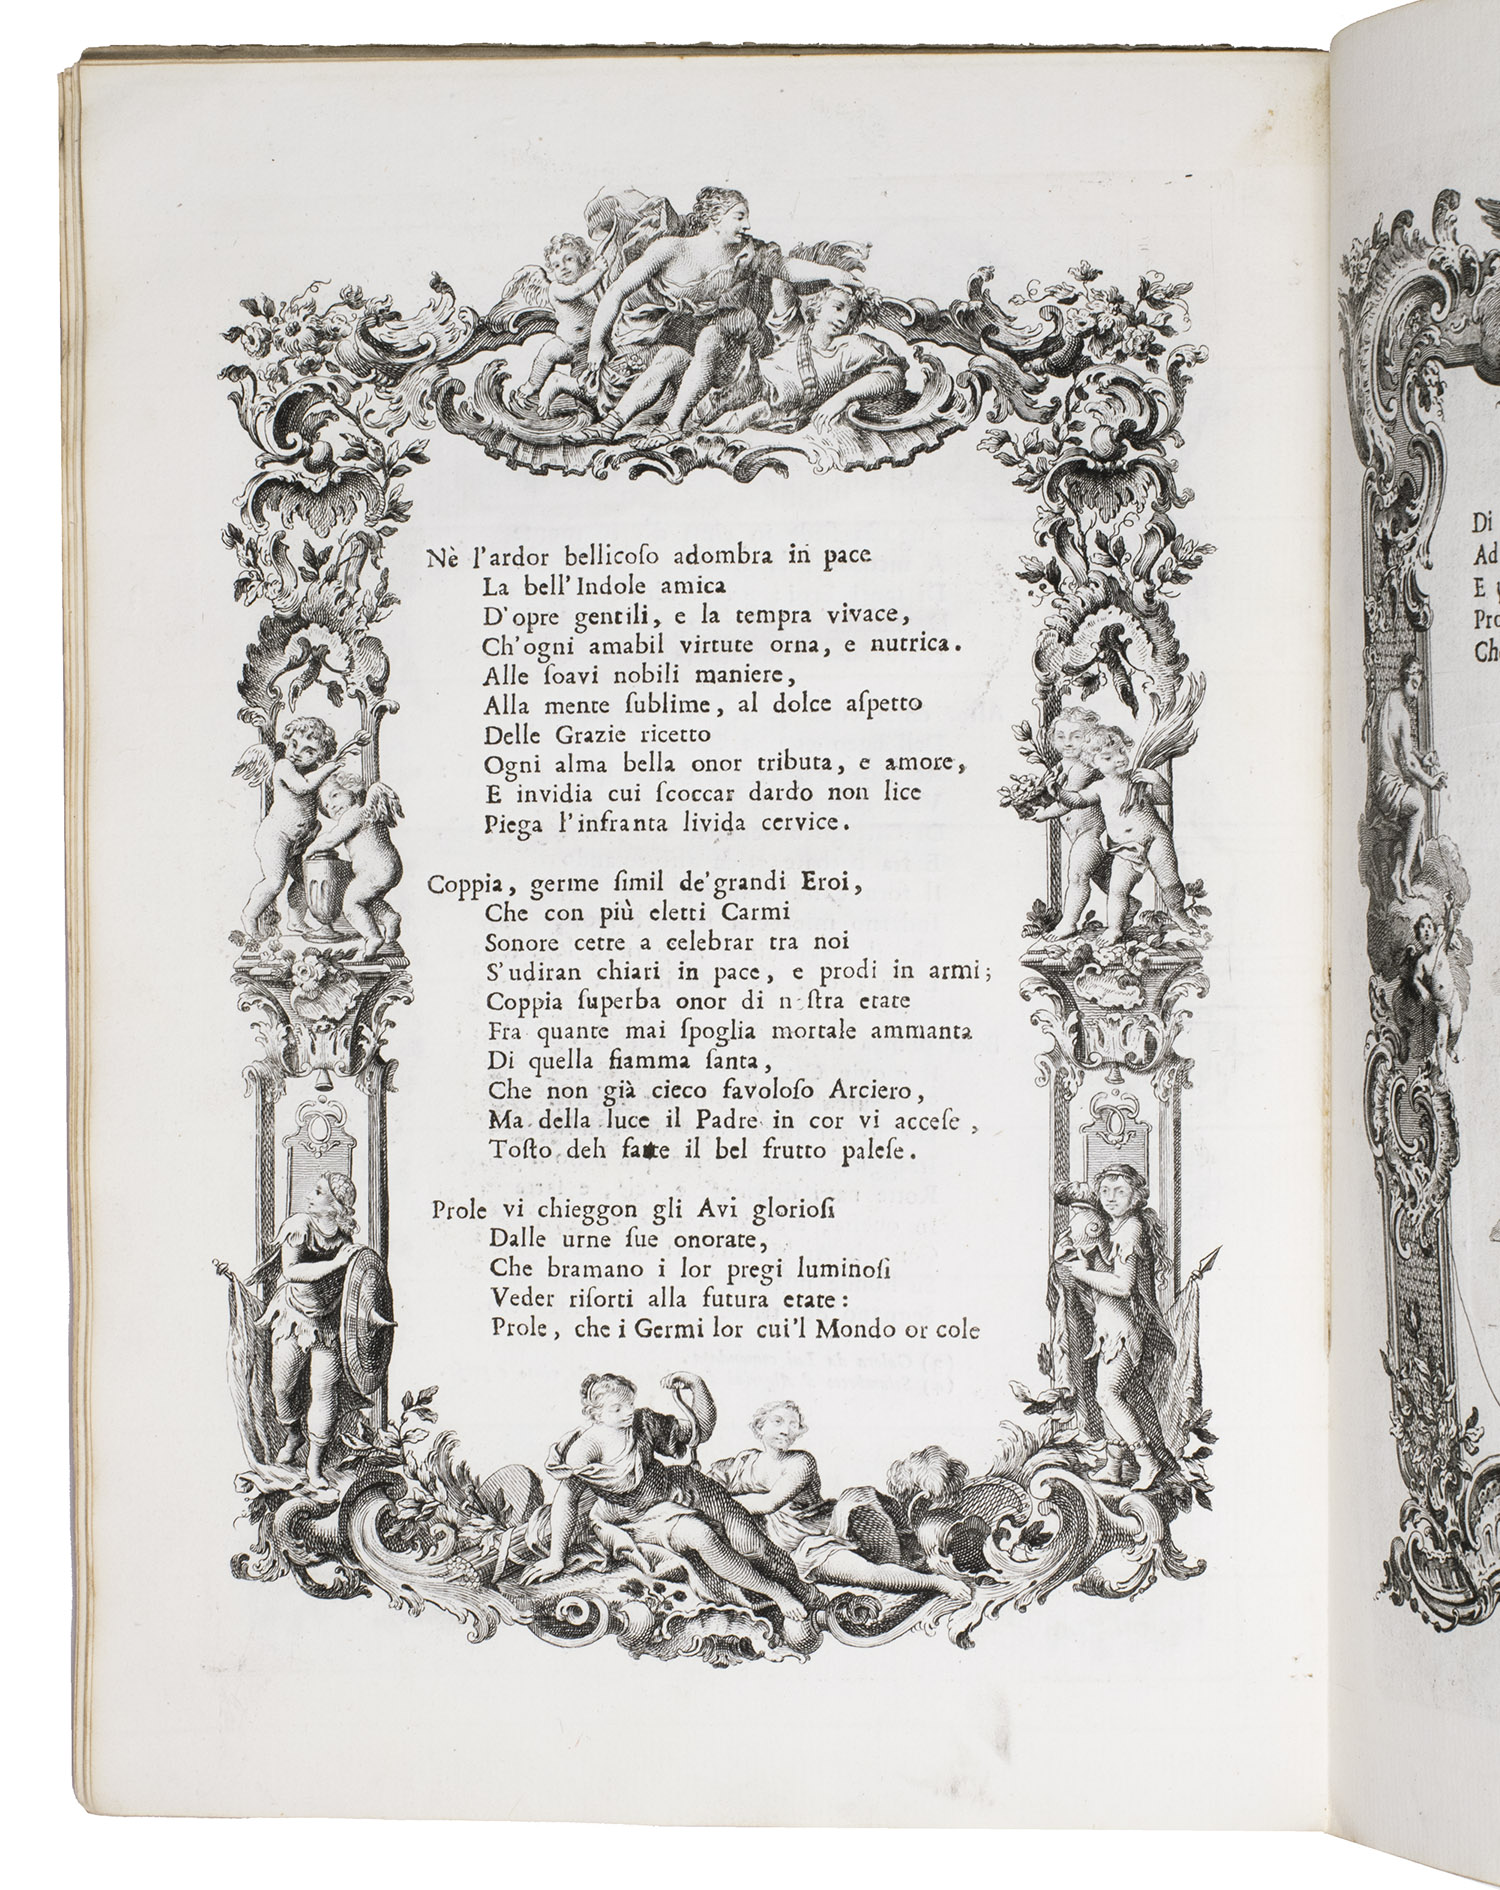 Nè l'ardor bellicoſo adombra in pace
La bell'Indole amica
D'opre gentili, e la tempra vivace,
Ch'ogni amabil virtute orna, e nutrica.
Alle ſoavi nobili maniere,
Alla mente ſublime, al dolce aſpetto
Delle Grazie ricetto
Ogni alma bella onor tributa, e amore,
E invidia cui ſcoccar dardo non lice
Piega l'infranta livida cervice.
Coppia, germe ſimil de'grandi Eroi,
Che con più eletti Carmi
Sonore cetre a celebrar tra noi
S'udiran chiari in pace, e prodi in armi;
Coppia ſuperba onor di noſtra etate
Fra quante mai ſpoglia mortale ammanta
Di quella fiamma ſanta,
Che non già cieco favoloſo Arciero,
Ma della luce il Padre in cor vi acceſe,
Toſto deh fate il bel frutto paleſe.
Prole vi chieggon gli Avi glorioſi
Dalle urne ſue onorate,
Che bramano i lor pregi luminoſi
Veder riſorti alla futura etate:
Prole, che i Germi lor cui'l Mondo or cole
Di
Ad
E
Pro
Che